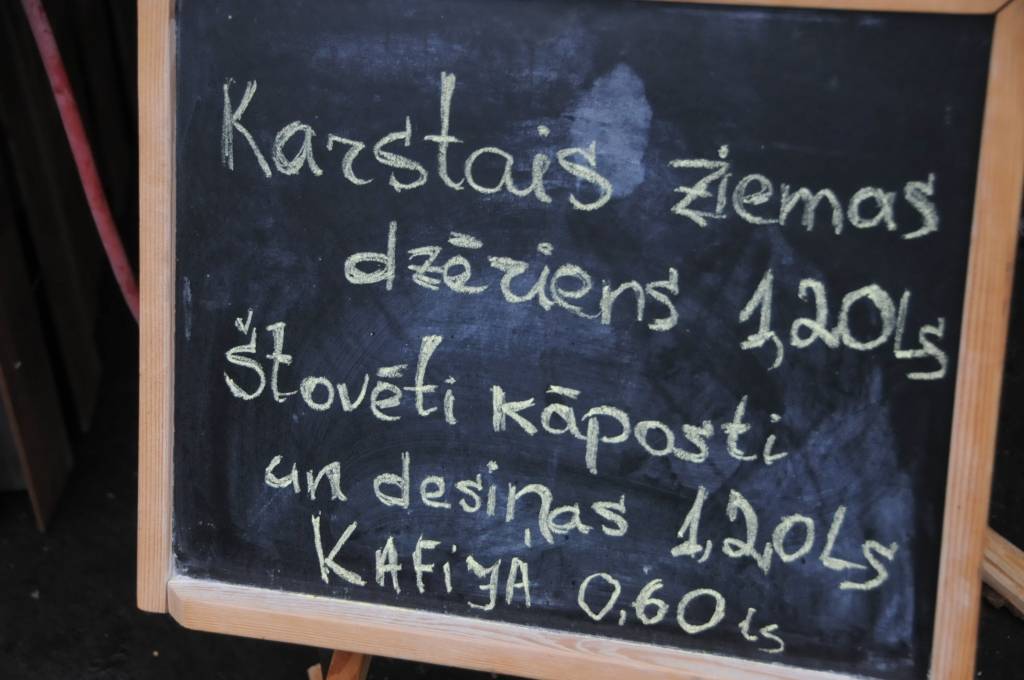 Karstais ziemas
dzēriens 1,20Ls
Štovēti kāposti
un desiņas 1,20Ls
KAFiJA 0,60 ls